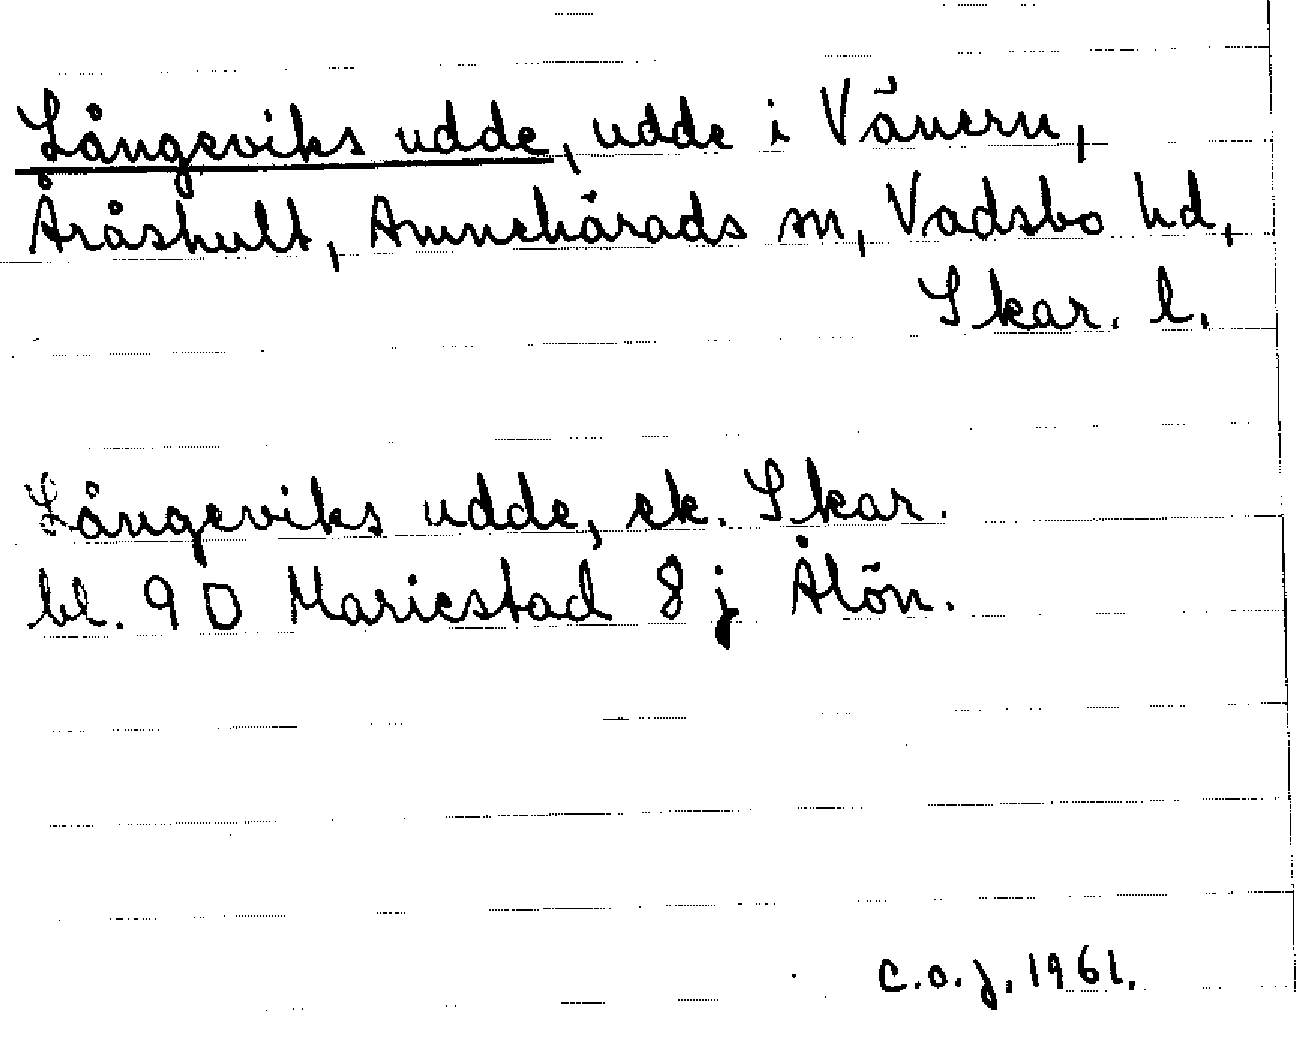 Långeviks udde, udde i Vänern,
Åråshult, Amnehärads sn, Vadsbo hd,
Skar. l.
Långeviks udde, ek. Skar.
bl. 90 Mariestad 8 j Ålön.
C.O.J. 1961.